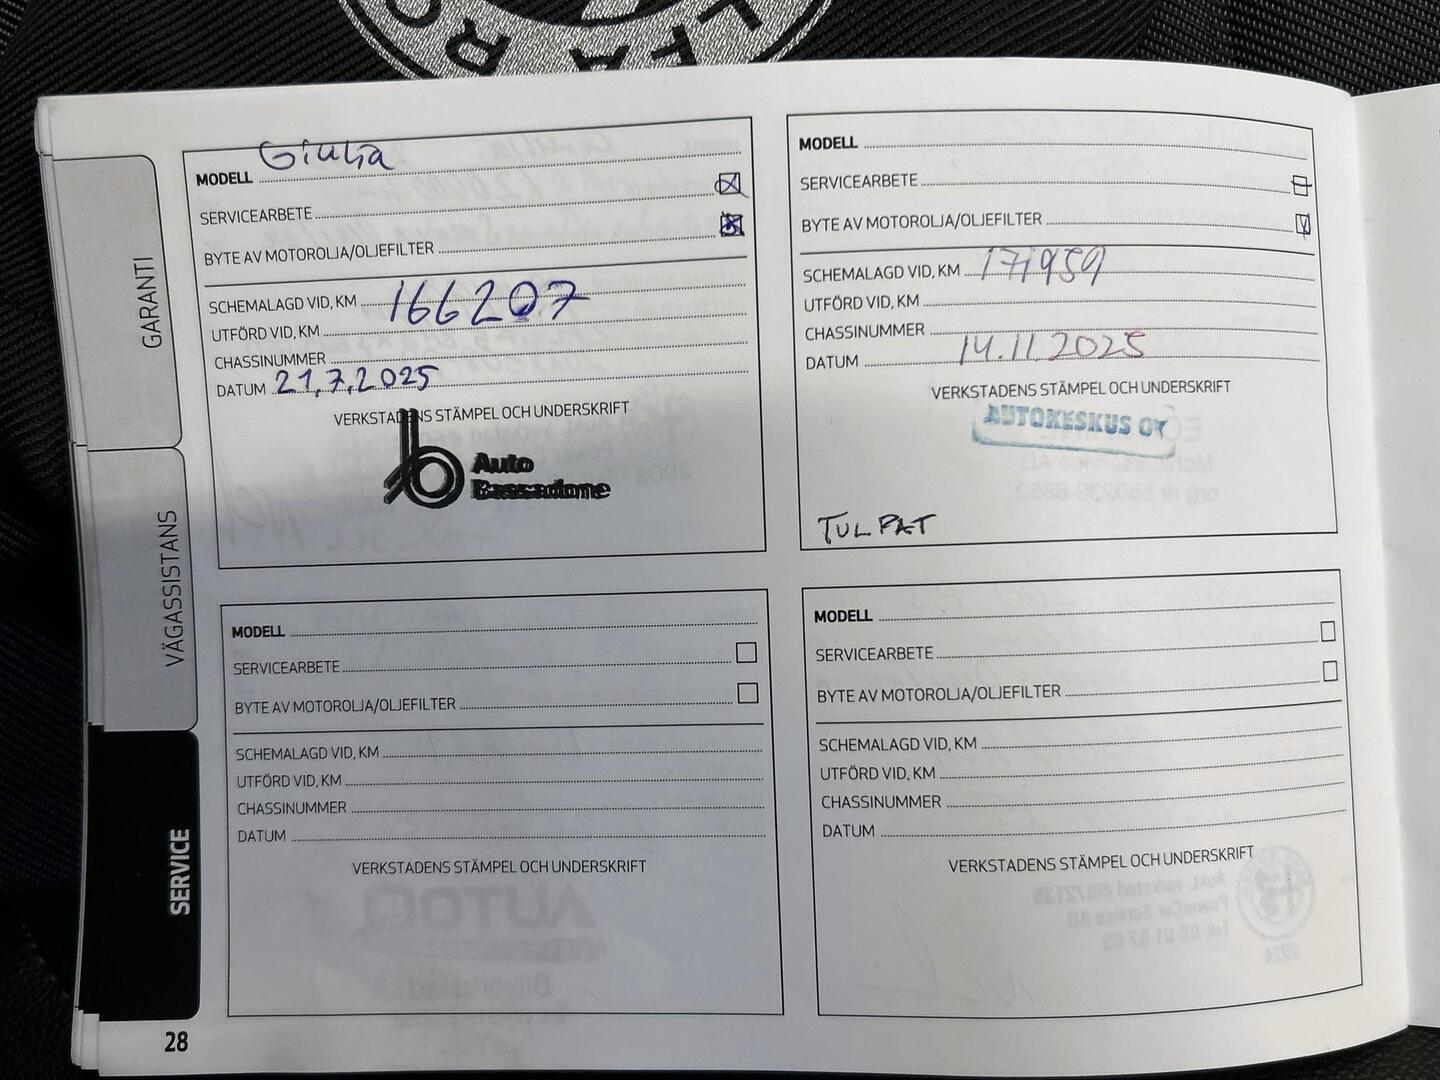 GARANTI
VÄGASSISTANS
SERVICE
MODELL Giulia
SERVICEARBETE
BYTE AV MOTOROLJA/OLJEFILTER
SCHEMALAGD VID, KM 166207
UTFÖRD VID, KM
CHASSINUMMER
DATUM 21,7,2025
VERKSTADENS STÄMPEL OCH UNDERSKRIFT
Auto
Bassadone
MODELL
SERVICEARBETE
BYTE AV MOTOROLJA/OLJEFILTER
SCHEMALAGD VID, KM 171959
UTFÖRD VID, KM
CHASSINUMMER
DATUM 14.11.2025
VERKSTADENS STÄMPEL OCH UNDERSKRIFT
AUTOKESKUS OY
TUL PAT
MODELL
SERVICEARBETE
BYTE AV MOTOROLJA/OLJEFILTER
SCHEMALAGD VID, KM
UTFÖRD VID, KM
CHASSINUMMER
DATUM
VERKSTADENS STÄMPEL OCH UNDERSKRIFT
MODELL
SERVICEARBETE
BYTE AV MOTOROLJA/OLJEFILTER
SCHEMALAGD VID, KM
UTFÖRD VID, KM
CHASSINUMMER
DATUM
VERKSTADENS STÄMPEL OCH UNDERSKRIFT
28